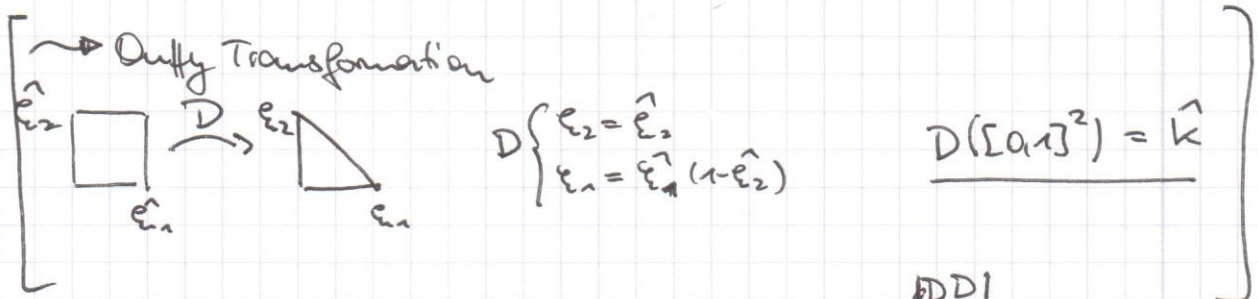 → Duffy Transformation
ξ̂₂ D ξ₂ D { ξ₂ = ξ̂₂
ξ₁ = ξ̂₁ (1-ξ̂₂) D([0,1]²) = K̂
ξ̂₁ ξ₁